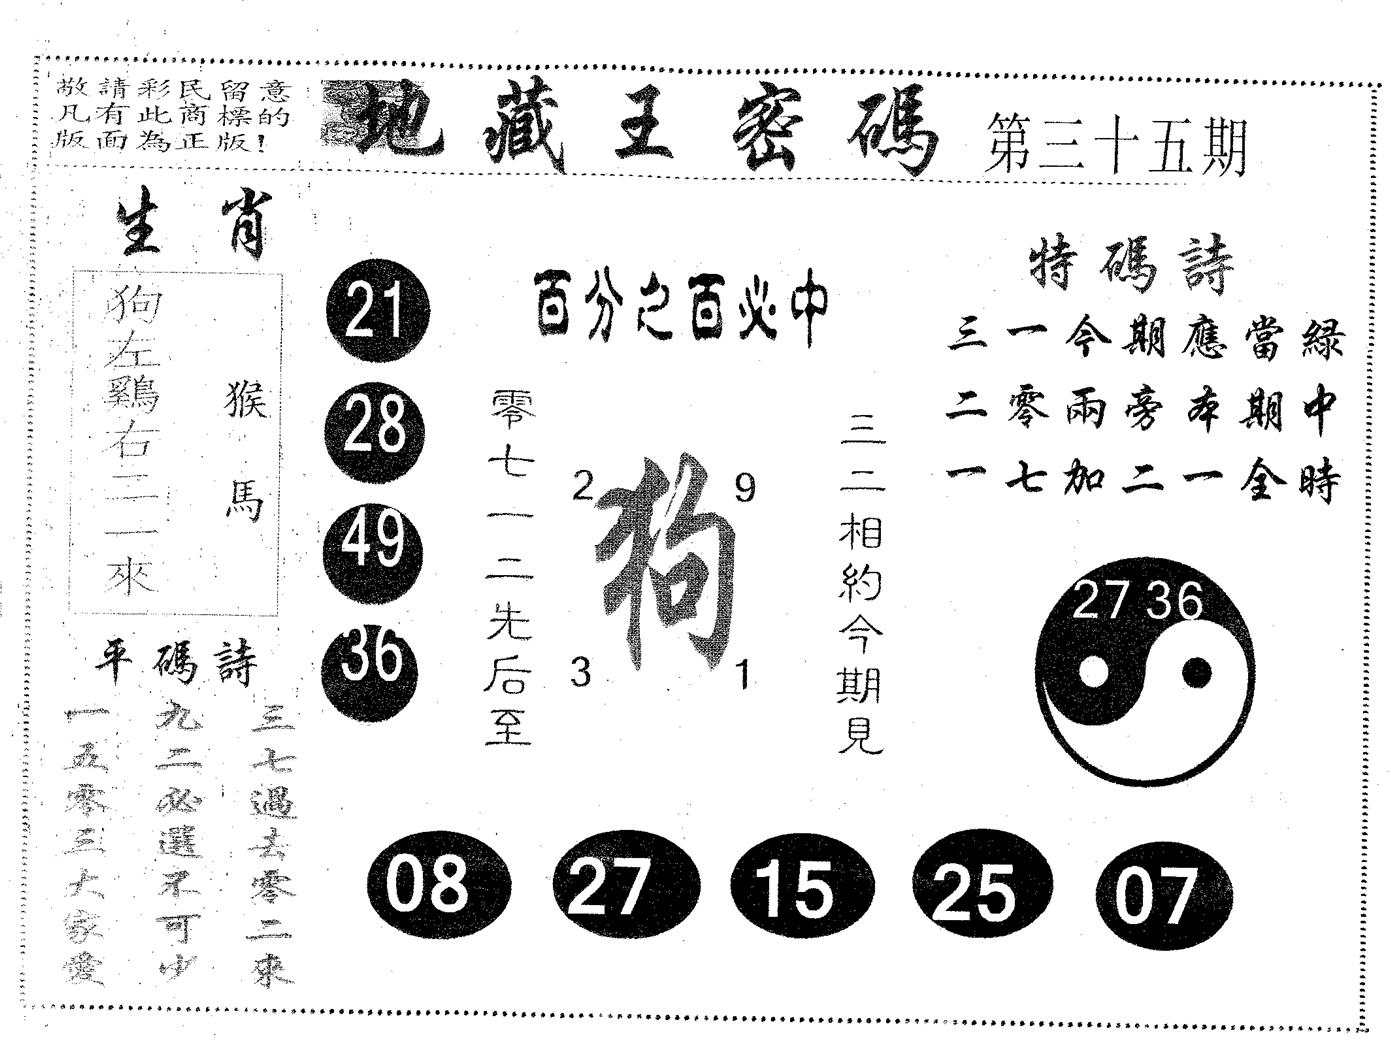 敬請彩民留意
凡有此商標的
版面為正版!
地藏王密碼
第三十五期
生肖
猴馬
狗左鷄右二一來
21
28
49
36
百分之百必中
零七一二先后至
2
9
狗
3
1
三二相約今期見
特碼詩
三一今期應當綠
二零兩旁本期中
一七加二一全時
27 36
平碼詩
三七過去零二來
九二必選不可少
一五零三大家愛
08
27
15
25
07